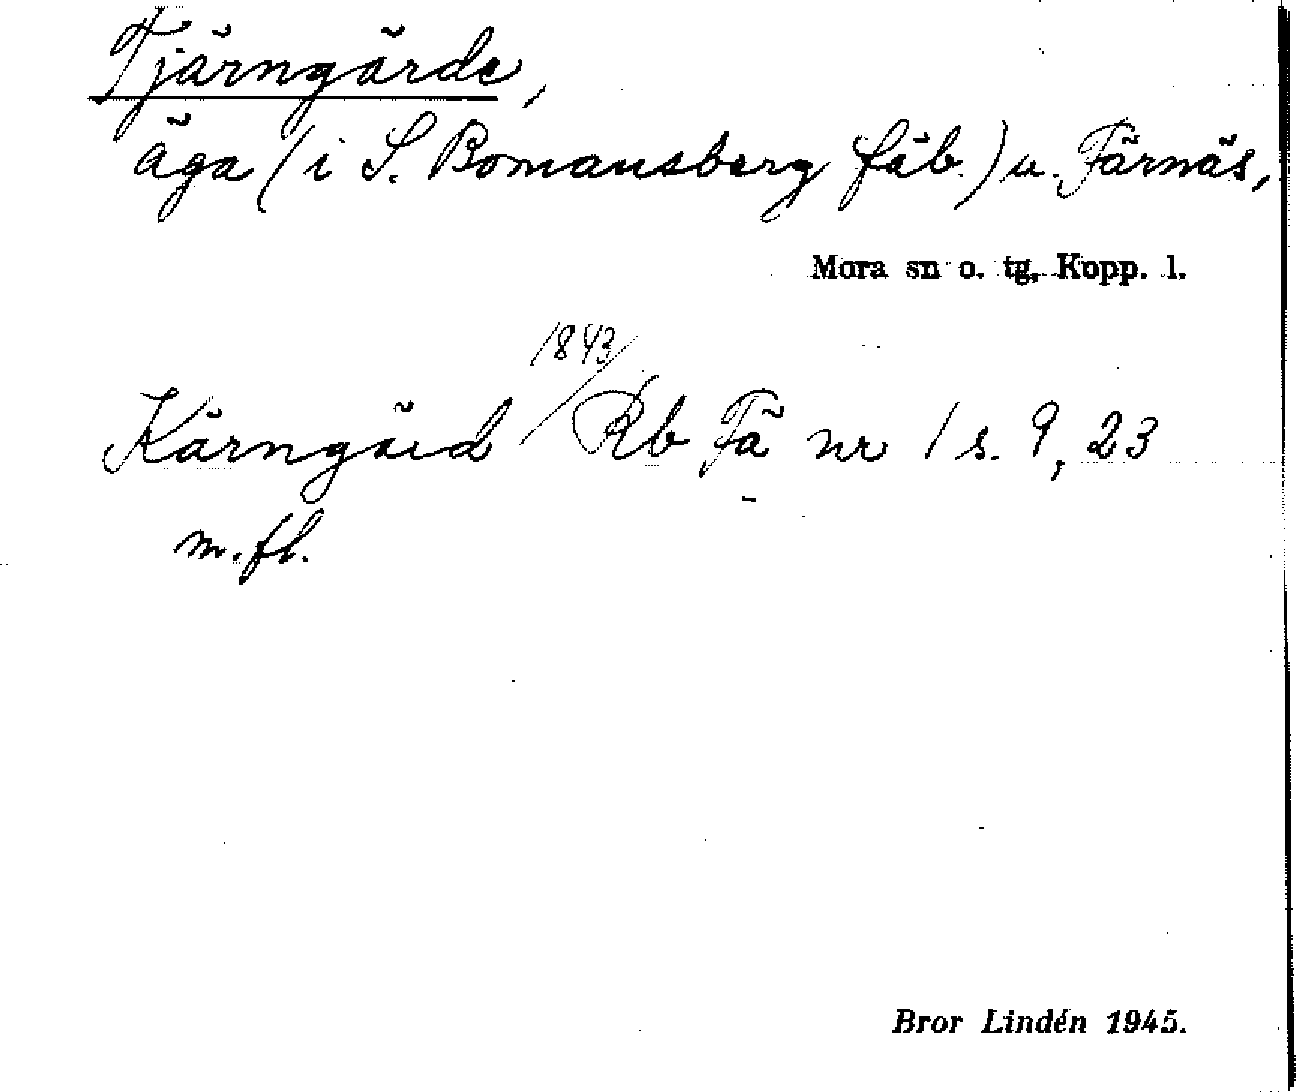 Tjärngärde,
äga (i S. Bomansberg fäb.) u. Färnäs,
Mora sn o. tg, Kopp. l.
Kärngärd 1843/ Rb Fä nr 1 s. 9, 23
m. fl.
Bror Lindén 1945.